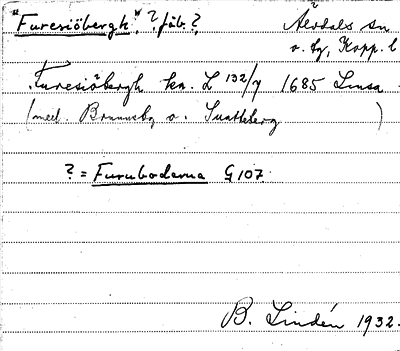 "Furesiöbergh", ? fäb. ? Älvdals sn
o. tg, Kopp. l
Furesiöbergh kn. L 132/7 1685 Linsa
(med. Brunnsbg o. Suartteberg )
? = Furubodarna G 107.
B. Lindén 1932.